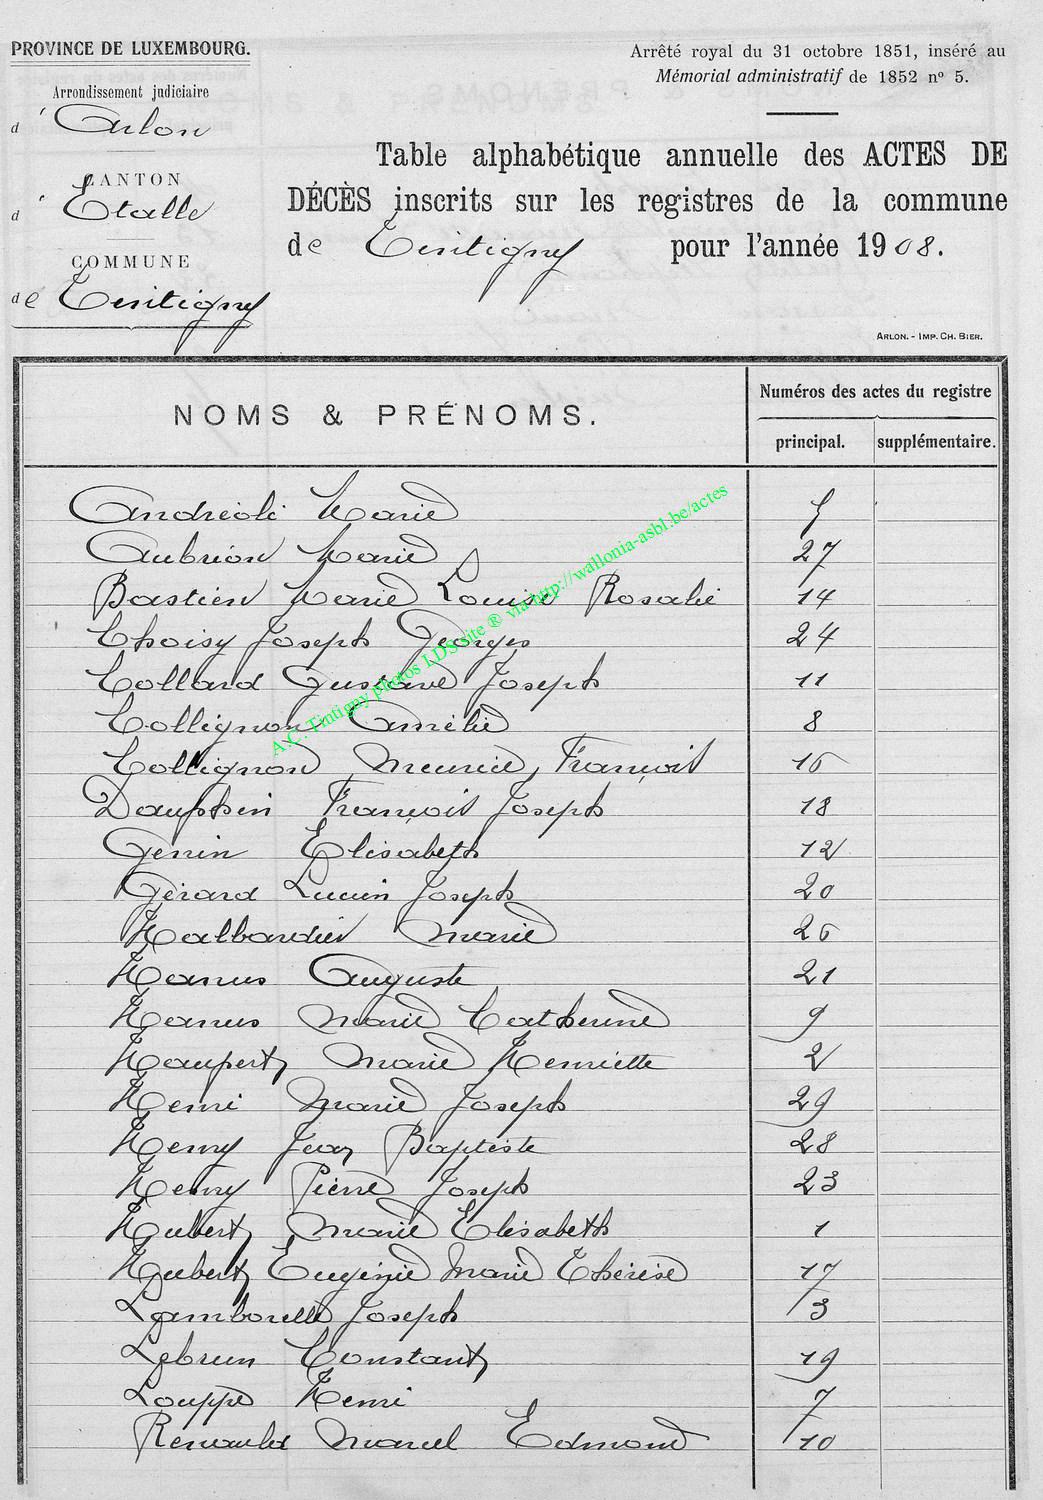 PROVINCE DE LUXEMBOURG.
Arrondissement judiciaire
d' Arlon
CANTON
d' Etalle
COMMUNE
de Tintigny
Arrêté royal du 31 octobre 1851, inséré au
Mémorial administratif de 1852 nº 5.
Table alphabétique annuelle des ACTES DE
DÉCÈS inscrits sur les registres de la commune
de Tintigny pour l'année 1908.
ARLON. - IMP. CH. BIER.
NOMS & PRÉNOMS.
Numéros des actes du registre
principal. supplémentaire.
Andréoli Marie 5
Aubrion Marie 27
Bastien Marie Louise Rosalie 14
Choisy Joseph Georges 24
Collard Gustave Joseph 11
Collignon Amélie 8
Collignon Meunier, François 16
Dauphin François Joseph 18
Genin Elisabeth 12
Gérard Lucien Joseph 20
Halbardier Marie 26
Hanus Auguste 21
Hanus Marie Catherine 9
Haupert Marie Henriette 2
Henri Marie Joseph 29
Henry Jean Baptiste 28
Henry Pierre Joseph 23
Hubert Marie Elisabeth 1
Hubert Eugénie Marie Thérèse 17
Lamborelle Joseph 3
Lebrun Constant 19
Louppe Henri 7
Renauld Marcel Edmond 10
A.C. Tintigny photos LDS site ® via http://wallonia-asbl.be/actes